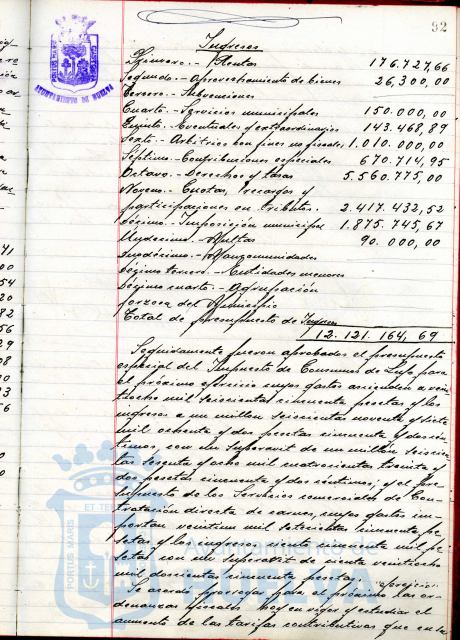 92
Ingresos
Primero.- Rentas 176.727,66
Segundo.- Aprovechamiento de bienes 26,300,00
Tercero.- Subvenciones
Cuarto.- Servicios municipales 150.000,00
Quinto.- Eventuales y extraordinarios 143.468,89
Sexto.- Arbitrios con fines no fiscales 1.010.000,00
Séptimo.- Contribuciones especiales 670.714,95
Octavo.- Derechos y tasas 5.560.775,00
Noveno.- Cuotas, recargos y
participaciones en tributos. 2.417.432,52
Décimo.- Imposición municipal 1.875.745,67
Undécimo.- Multas 90.000,00
Duodécimo.- Mancomunidades
Décimo tercero.- Entidades menores
Décimo cuarto.- Agrupación
forzosa del Municipio
Total de presupuesto de Ingresos 12.121.164,69
Seguidamente fueron aprobados el presupuesto
especial del Impuesto de Consumos de Lujo para
el próximo ejercicio cuyos gastos ascienden a vein
tiocho mil seiscientas cincuenta pesetas y los
ingresos a un millon seiscientas noventa y siete
mil ochenta y dos pesetas cincuenta y dos cén
timos, con un superavit de un millón seiscien
tas sesenta y ocho mil cuatrocientas treinta y
dos pesetas cincuenta y dos céntimos; y el pre
supuesto de los Servicios comerciales de Con
tratación directa de carnes, cuyos gastos im
portan veintiun mil setecientas cincuenta pe
setas y los ingresos ciento cincuenta mil pe
setas con un superavit de ciento veintiocho
mil doscientas cincuenta pesetas.
Se acordó prorrogar para el próximo las or
denanzas fiscales hoy en vigor y estudiar el
aumento de las tarifas contributivas que en la
PORTUS MARIS ET TERRAE CUSTODIA
AYUNTAMIENTO DE HUELVA
41
00
54
20
82
56
29
08
20
23
56
PORTUS MARIS
ET TERRAE
Ayuntamiento de
HUELVA